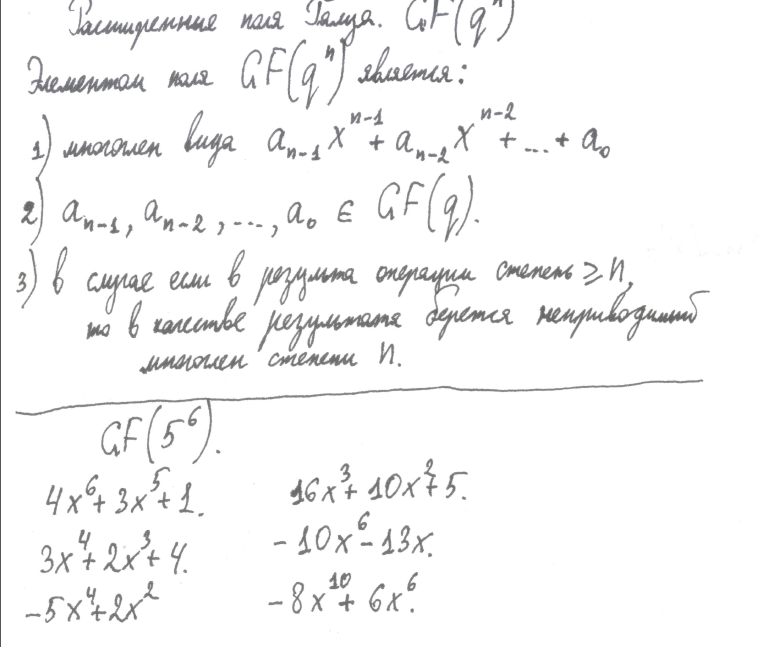 Расширенные поля Галуа. GF(qⁿ)
Элементом поля GF(qⁿ) является:
1) многочлен вида aₙ₋₁xⁿ⁻¹ + aₙ₋₂xⁿ⁻² + ... + a₀
2) aₙ₋₁, aₙ₋₂, ..., a₀ ∈ GF(q).
3) в случае если в результа операции степень ≥ n,
то в качестве результата берется неприводимый
многочлен степени n.
GF(5⁶).
4x⁶ + 3x⁵ + 1.
3x⁴ + 2x³ + 4.
-5x⁴ + 2x²
16x³ + 10x² + 5.
-10x⁶ - 13x.
-8x¹⁰ + 6x⁶.